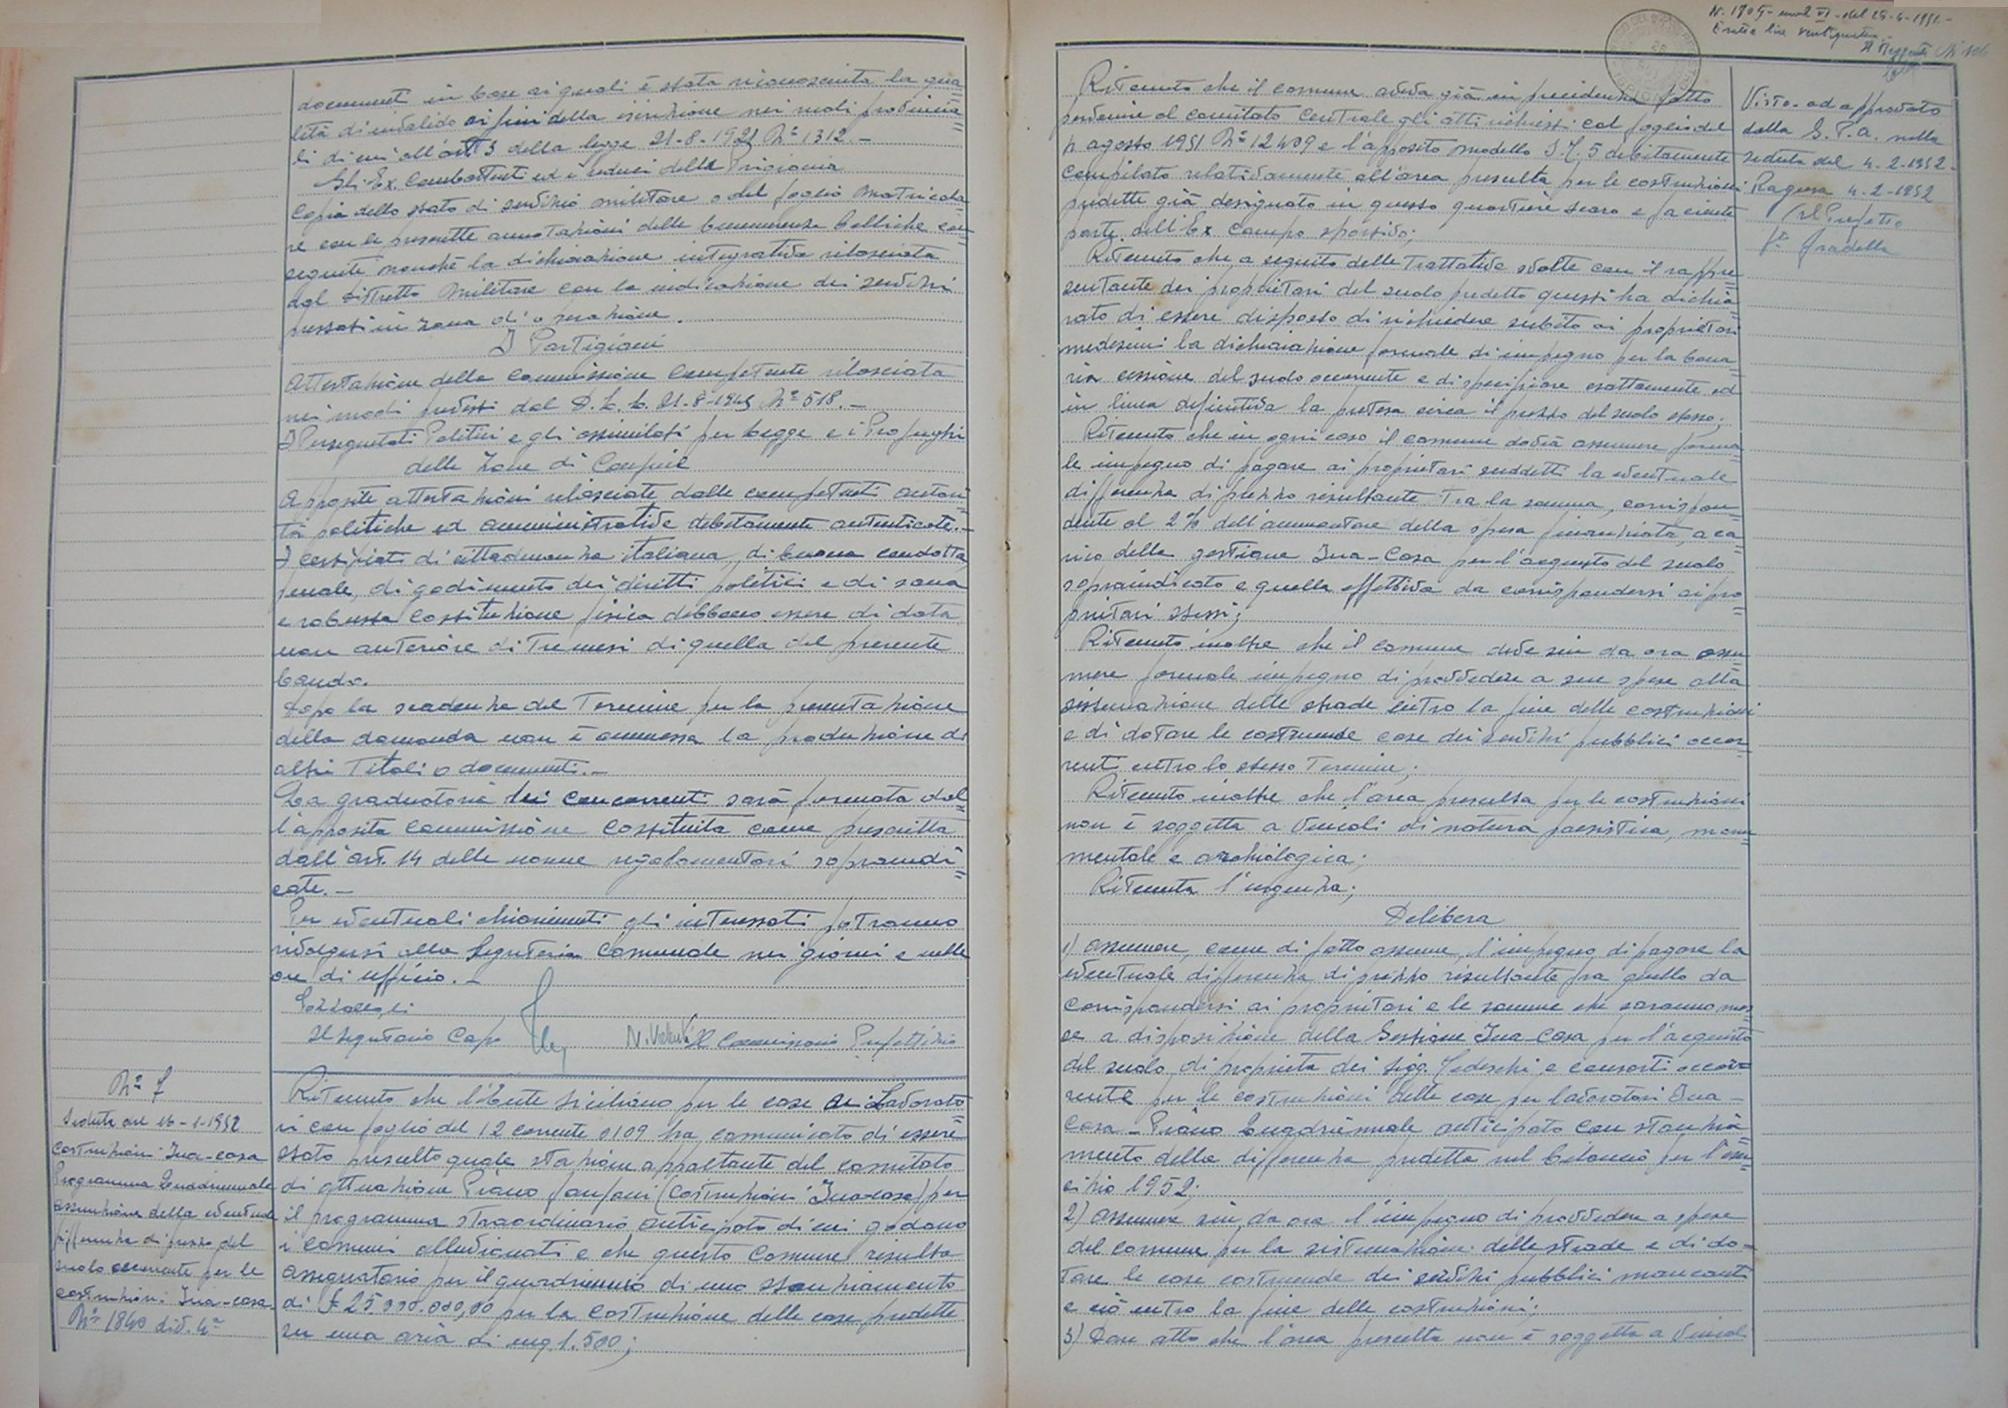 documenti in base ai quali è stata riconosciuta la qua=
lità di invalido ai fini della iscrizione nei ruoli provincia=
li di cui all'art. 3 della legge 21-8-1921 N° 1312.-
Gli Ex Combattenti ed i reduci della Prigionia
Copia dello stato di servizio militare o del foglio matricola=
re con le prescritte annotazioni delle benemerenze belliche con=
seguite nonchè la dichiarazione integrativa rilasciata
dal distretto militare con la indicazione dei servizi
prestati in zona di operazione.
I Partigiani
Attestazione della commissione competente rilasciata
nei modi previsti dal D.L.L. 21-8-1945 N° 518.-
I Perseguitati Politici e gli assimilati per legge e i Profughi
delle zone di Confine
Apposite attestazioni rilasciate dalle competenti autori=
tà politiche ed amministrative debitamente autenticate.-
I certificati di cittadinanza italiana, di buona condotta
penale, di godimento dei diritti politici e di sana
e robusta costituzione fisica debbono essere di data
non anteriore di tre mesi di quella del presente
bando.
Dopo la scadenza del Termine per la presentazione
della domanda non è ammessa la produzione di
altri Titoli o documenti.-
La graduatoria dei concorrenti sarà formata dal=
l'apposita commissione costituita come prescritto
dall'art. 14 delle norme regolamentari sopraindi=
cate.-
Per eventuali chiarimenti gli interessati potranno
rivolgersi alla Segreteria Comunale nei giorni e nelle
ore di ufficio.-
Il Segretario Capo
Il Commissario Prefettizio
N° 7
Seduta del 16-1-1952
Costruzioni Ina-casa
Programma Quadriennale
assunzione della eventuale
differenza di prezzo del
suolo occorrente per le
costruzioni Ina-casa.
N° 1840 div. 4ª
Ritenuto che l'Ente Siciliano per le case ai Lavorato
ri con foglio del 12 corrente 0109 ha comunicato di essere
stato prescelto quale stazione appaltante del comitato
di attuazione Piano Fanfani (Costruzioni Ina-casa) per
il programma straordinario anticipato di cui godono
i comuni alluvionati e che questo Comune risulta
assegnatario per il quadriennio di uno stanziamento
di £ 25.000.000,00 per la costruzione delle case predette
su una aria di mq. 1.500;
N. 1705 - mod. VI - del 28-4-1951.-
Esatte lire
Ritenuto che il comune aveva già in precedenza fatto
pervenire al comitato Centrale gli atti richiesti col foglio del
agosto 1951 N° 12409 e l'apposito modello debitamente
compilato relativamente all'area prescelta per le costruzioni
predette già designato in questo quartiere Scaro e facente
parte dell'Ex Campo sportivo;
Ritenuto che a seguito delle Trattative svolte con il rappre=
sentante dei proprietari del suolo predetto questi ha dichia=
rato di essere disposto di richiedere subito ai proprietari
medesimi la dichiarazione formale di impegno per la bona=
ria cessione del suolo occorrente e di specificare esattamente ed
in linea definitiva la pretesa circa il prezzo del suolo stesso;
Ritenuto che in ogni caso il comune dovrà assumere forma=
le impegno di pagare ai proprietari suddetti la eventuale
differenza di prezzo risultante tra la somma, corrispon=
dente al 2% dell'ammontare della spesa finanziata, a ca=
rico della gestione Ina-Casa per l'acquisto del suolo
sopraindicato e quella effettiva da corrispondersi ai pro=
prietari stessi;
Ritenuto inoltre che il comune deve sin da ora assu=
mere formale impegno di provvedere a sue spese alla
sistemazione delle strade entro la fine delle costruzioni
e di dotare le costruende case dei servizi pubblici occor=
renti entro lo stesso Termine;
Ritenuto inoltre che l'area prescelta per le costruzioni
non è soggetta a vincoli di natura paesistica, monu=
mentale e archiologica;
Ritenuta l'urgenza;
Delibera
1) assumere, come di fatto assume, l'impegno di pagare la
eventuale differenza di prezzo risultante fra quello da
corrispondersi ai proprietari e le somme che saranno mes=
se a disposizione della Gestione Ina Casa per l'acquisto
del suolo di proprietà dei Sigg. Tedeschi e consorti occor=
rente per le costruzioni delle case per lavoratori Ina-
Casa - Piano Quadriennale anticipato con stanzia=
mento della differenza predetta nel bilancio per l'eser=
cizio 1952;
2) assumere sin da ora l'impegno di provvedere a spese
del comune per la sistemazione delle strade e di do=
tare le case costruende dei servizi pubblici mancanti
e ciò entro la fine delle costruzioni;
3) Dare atto che l'area prescelta non è soggetta a vincol
Visto ed approvato
dalla G.P.A. nella
seduta del 4-2-1952-
Ragusa 4-2-1952
Il Prefetto
f°